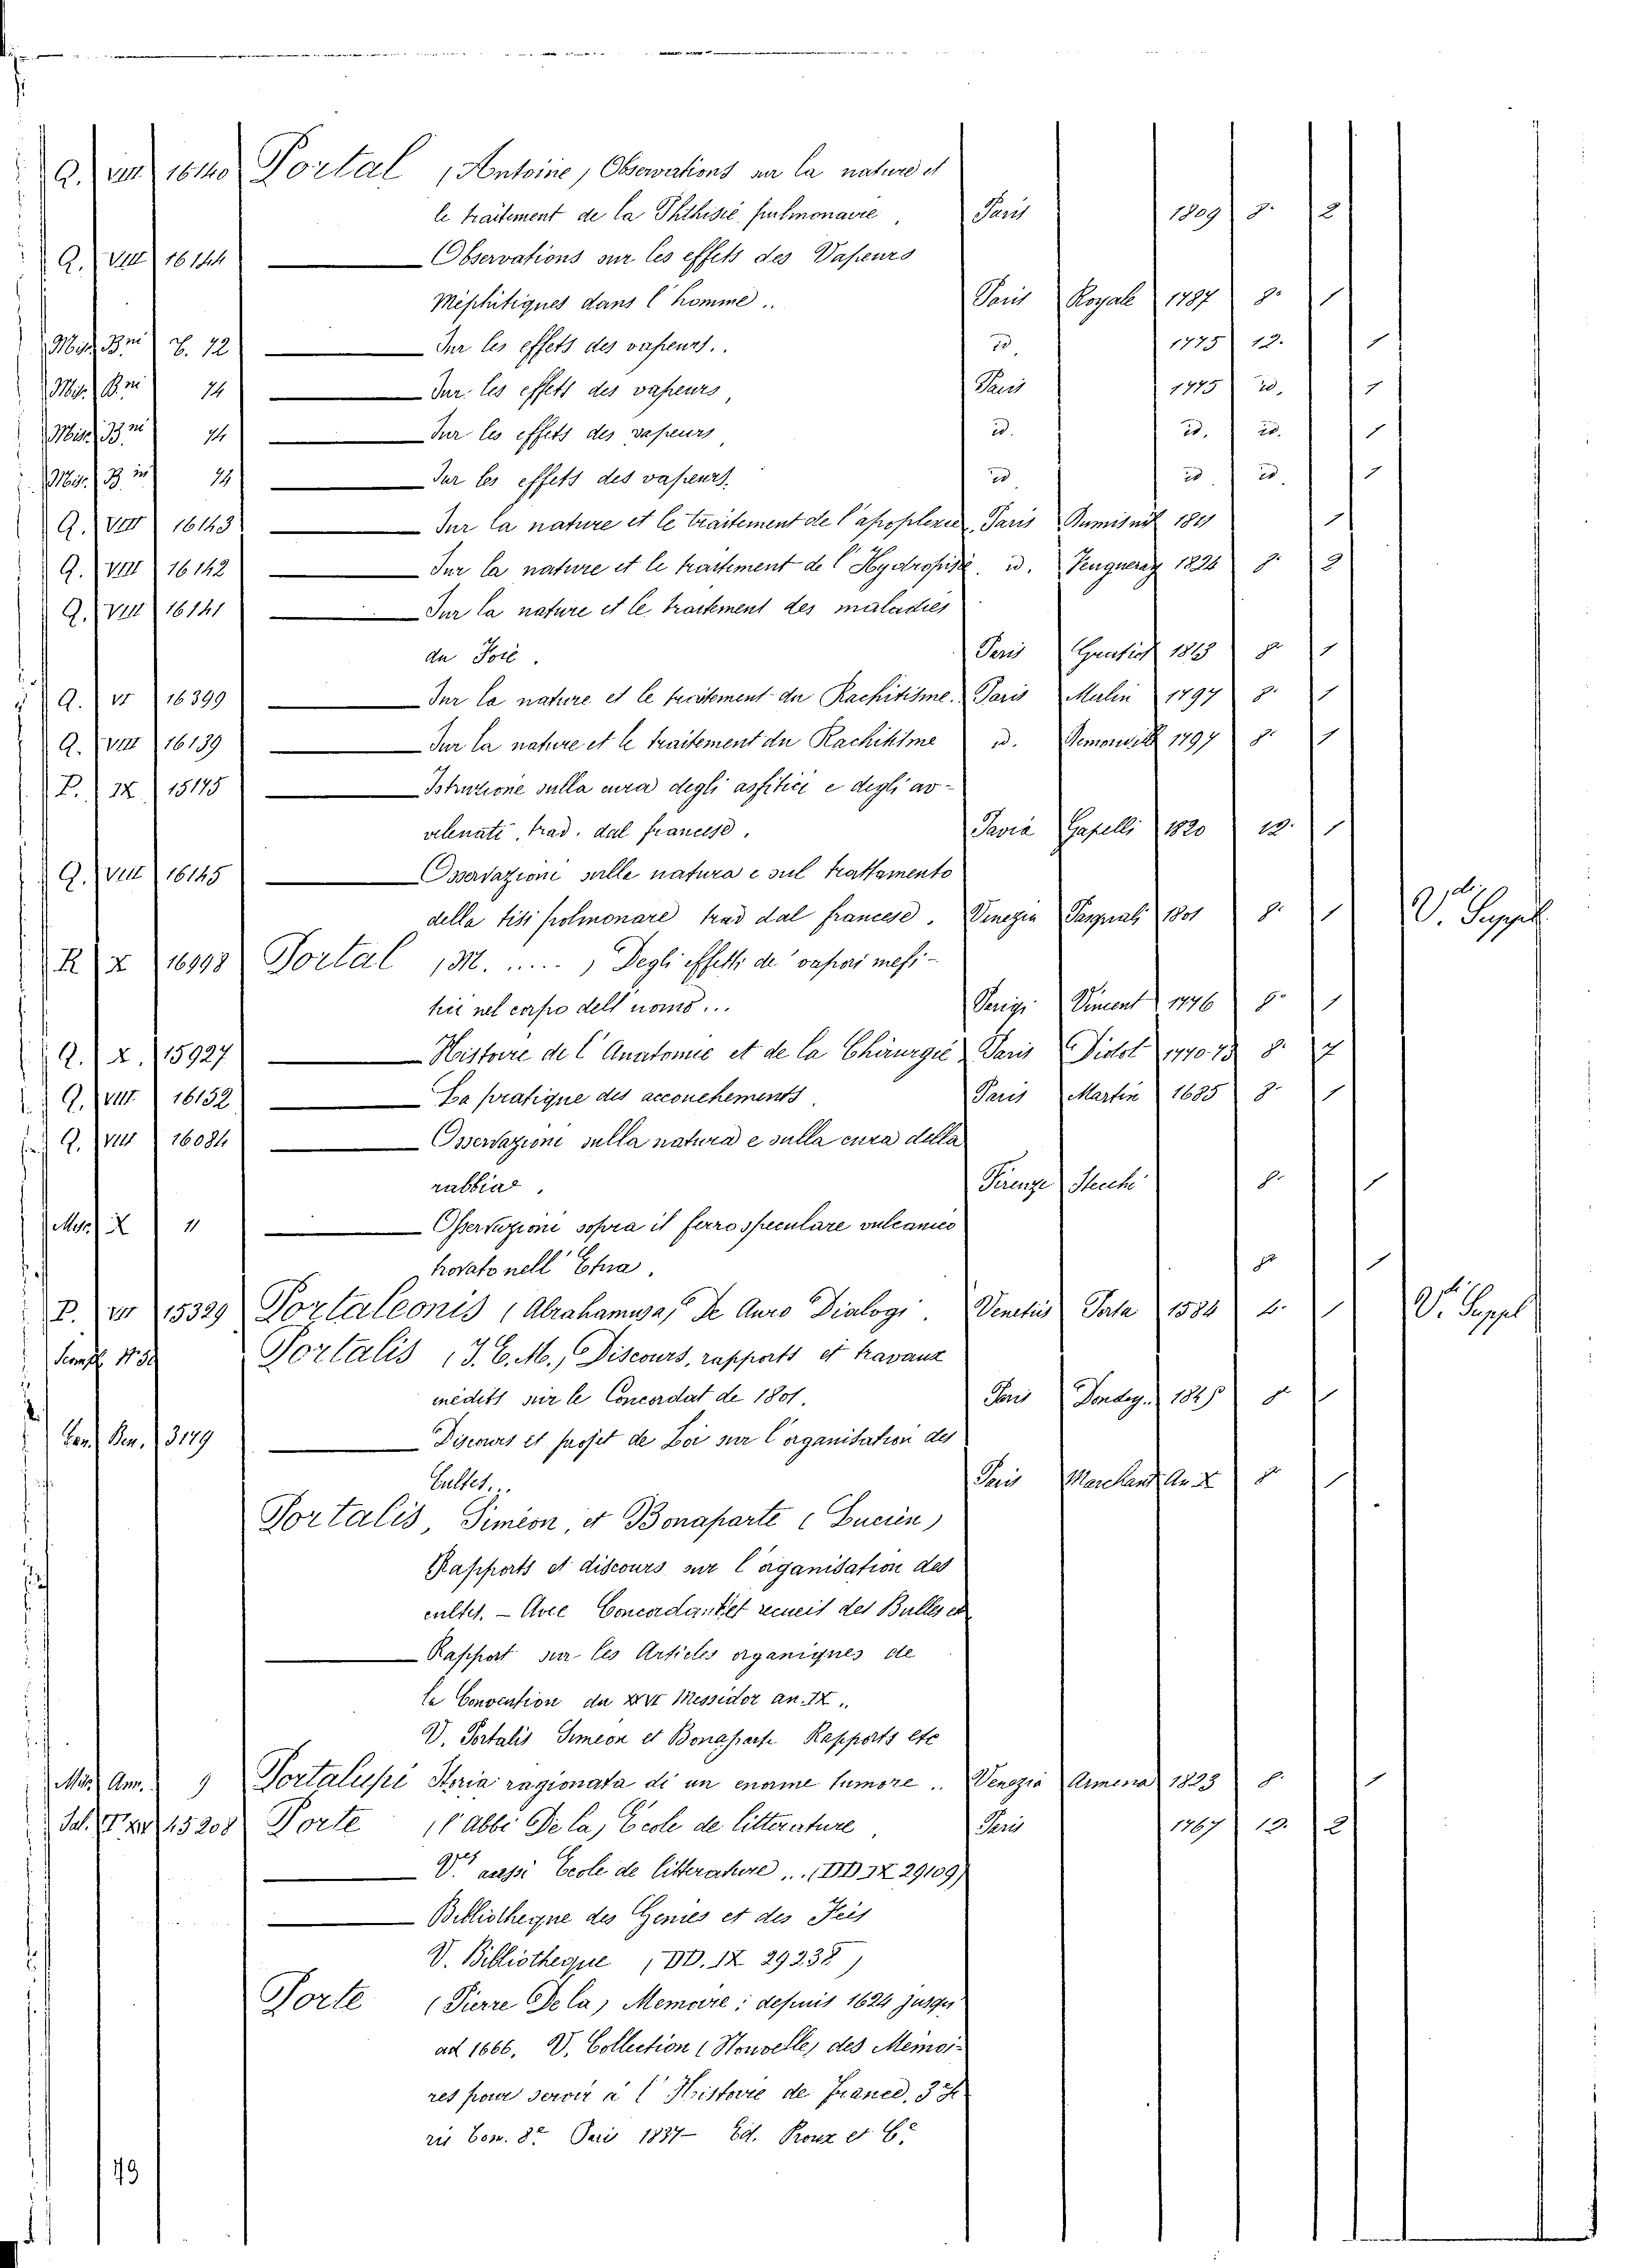 Q. VIII 16140 Portal (Antoine) Observations sur la nature et
le traitement de la Phthisie pulmonaire. Paris 1809 8° 2
Q. VIII 16144 Observations sur les effets des Vapeurs
Méphitiques dans l'homme.. Paris Royale 1787 8° 1
Misc. B.m 72 Sur les effets des vapeurs.. id. 1775 12. 1
Misc. B.m 74 Sur les effets des vapeurs, Paris 1775 id. 1
Misc. B.m 74 Sur les effets des vapeurs id. id. id. 1
Misc. B.m 74 Sur les effets des vapeurs. id. id. id. 1
Q. VIII 16143 Sur la nature et le traitement de l'apoplexie. Paris 1811 1
Q. VIII 16142 Sur la nature et le traitement de l'Hydropisie. id. 1824 8. 2
Q. VIII 16141 Sur la nature et le traitement des maladies
du Foie. Paris 1813 8° 1
Q. VI 16399 Sur la nature et le traitement du Rachitisme. Paris Mulin 1797 8. 1
Q. VIII 16139 Sur la nature et le traitement du Rachitisme id. 1797 8° 1
P. IX 15175 Istruzione sulla cura degli asfitici e degli av-
velenati, trad. dal francese. Pavia Capelli 1820 12. 1
Q. VIII 16145 Osservazioni sulla natura e sul trattamento
della tisi polmonare trad dal francese. Venezia Pasquali 1801 8. 1 V. Suppl
R X 16998 Portal (M. .....) Degli effetti de' vapori mefi-
tici nel corpo dell' uomo... Parigi Vincent 1776 8° 1
Q. X. 15927 Histoire de l'Anatomie et de la Chirurgie Paris Didot 1770-73 8. 7
Q. VIII 16152 La pratique des accouchements. Paris Martin 1685 8. 1
Q. VIII 16084 Osservazioni sulla natura e sulla cura della
rabbia. Firenze Stecchi 8. 1
Misc. X 11 Osservazioni sopra il ferro speculare vulcanico
trovato nell' Etna. 8° 1
P. VII 15329 Portaleonis (Abrahamusa) De Auro Dialogi. Venetiis Porta 1584 4. 1 V. Suppl
Portalis (J. E. M.) Discours, rapports et travaux
inédits sur le Concordat de 1801. Paris Dondey. 1845 8° 1
Ben. 3179 Discours et projet de Loi sur l'organisation des
Cultes... Paris Marchant An X 8° 1
Portalis, Siméon, et Bonaparte (Lucien)
Rapports et discours sur l'organisation des
cultes. — Avec Concordat et recueil des Bulles et
Rapport sur les Articles organiques de
la Convention du XXVI Messidor an IX..
V. Portalis Simeon et Bonaparte Rapports etc
Misc. Ann. 9 Portalupi Storia ragionata di un enorme tumore.. Venezia Armena 1823 8. 1
15208 Porte (l'Abbé De la) Ecole de litterature, Paris 1767 12. 2
V. aussi Ecole de litterature... (DD IX 29109)
Bibliotheque des Genies et des Feés
V. Bibliotheque (DD. IX 29238)
Porte (Pierre De la) Memoire: depuis 1624 jusqu'
ad 1666. V. Collection (Nouvelle) des Memoi-
res pour servir à l'Histoire de France, 3e Se
rie Tom. 8° Paris 1837 - Ed. Proux et Ce
79